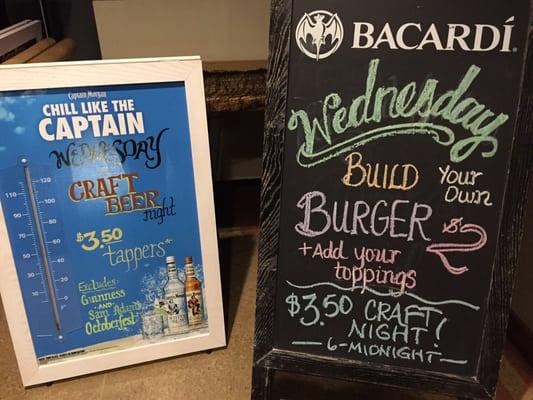 Captain Morgan
CHILL LIKE THE
CAPTAIN
WEDNESDAY
CRAFT
BEER
night
$3.50
tappers*
Excludes:
Guinness
and
Sam Adams
Octoberfest
110
120
BACARDÍ
Wednesday
BUILD YOUR
OWN
BURGER $2
+ Add your
toppings
$3.50 CRAFT
NIGHT!
6-MIDNIGHT